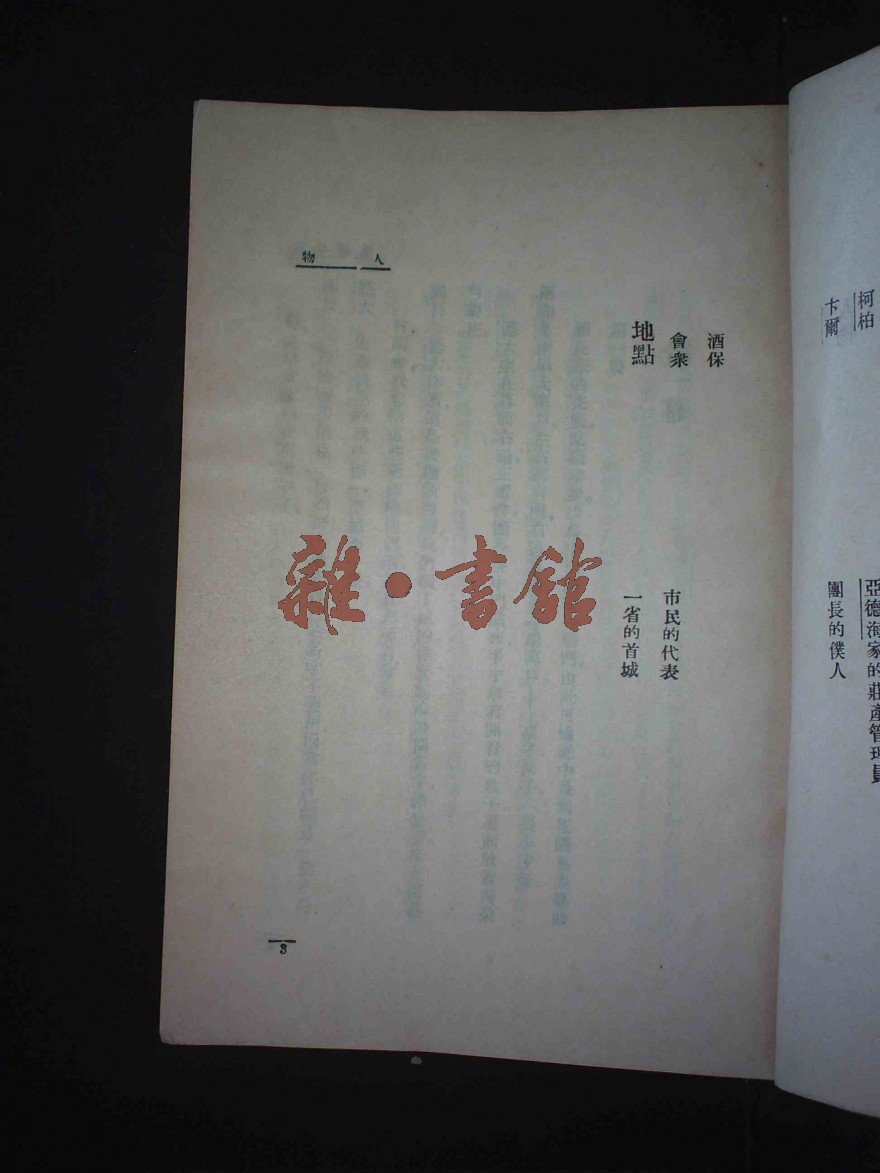 柯柏　亞德海家的莊產管理員
卞爾　團長的僕人
人物
酒保
會衆　市民的代表
地點　一省的首城
3
雜・書館